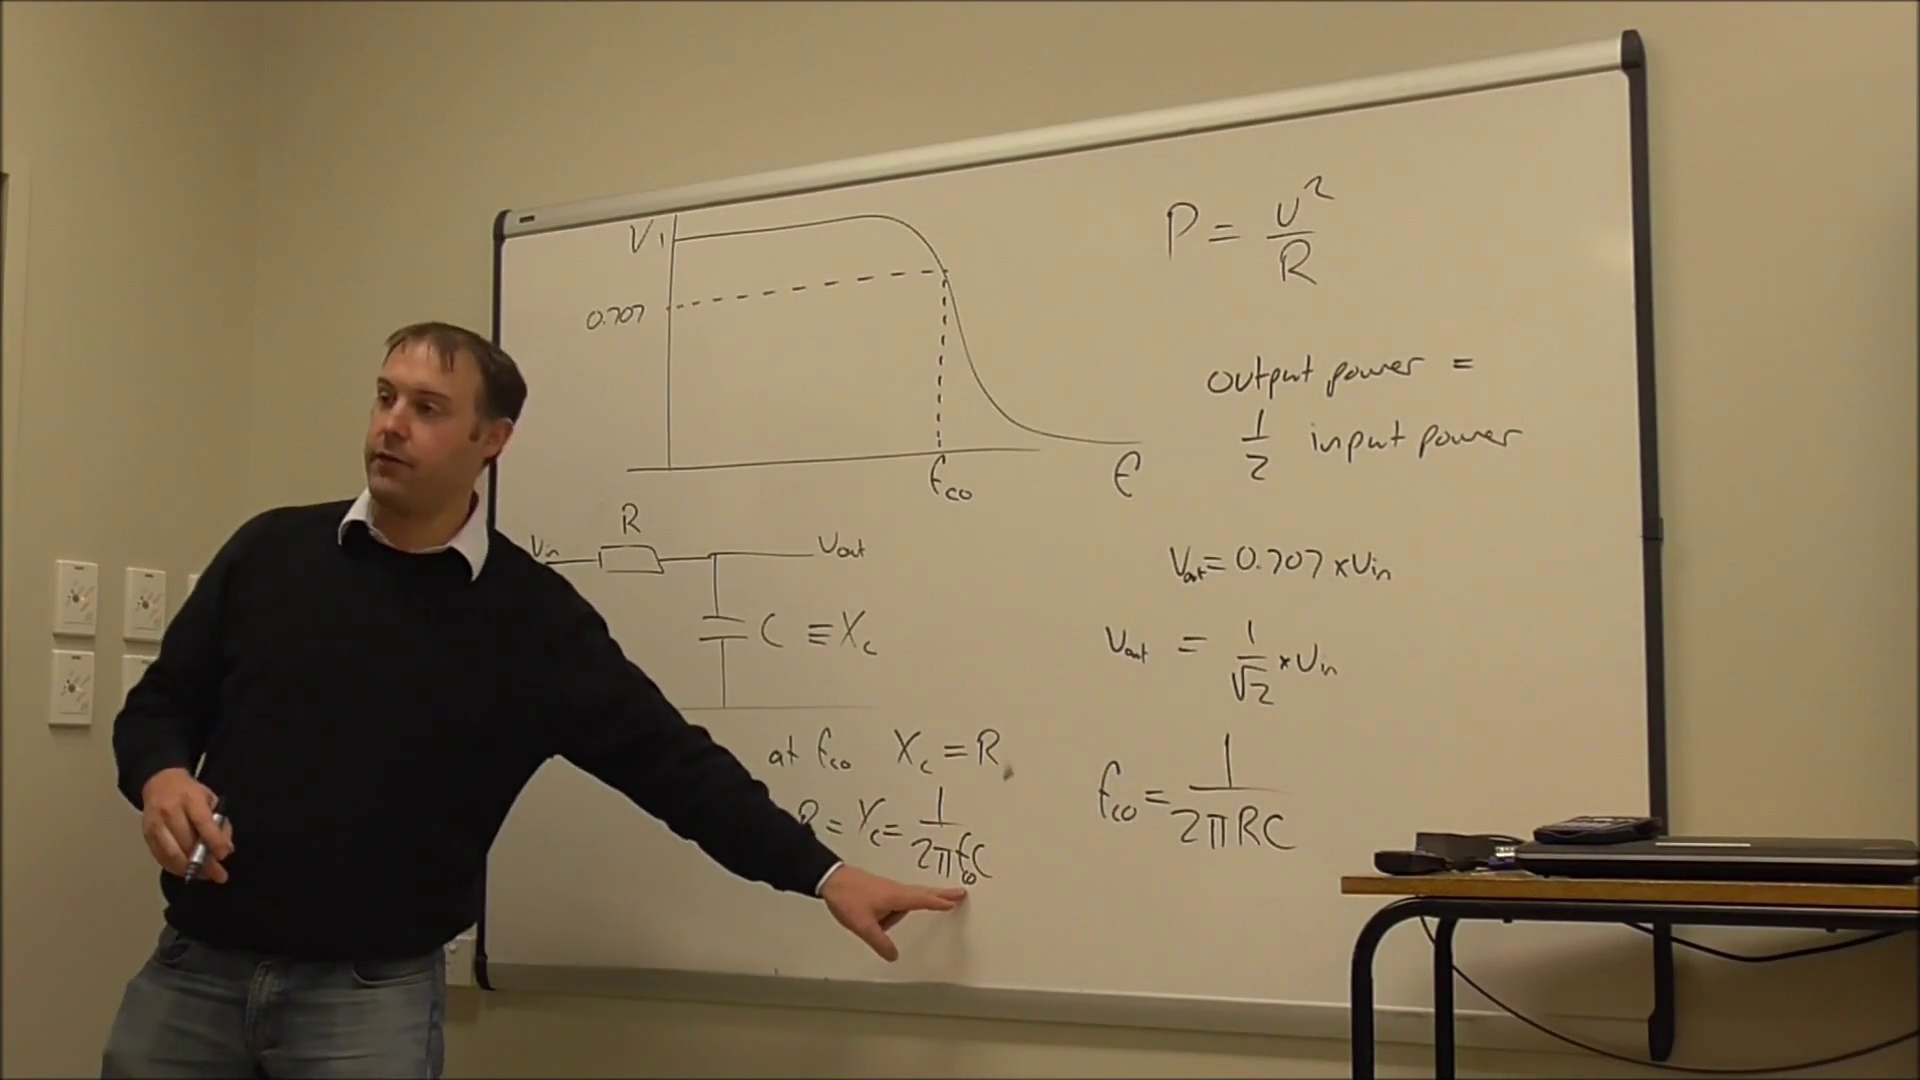 V 1
0.707
fco
f
R
Vin
Vout
C ≡ Xc
at fco Xc = R
R = Xc = 1/2πfcoC
P = V²/R
output power =
1/2 input power
Vout = 0.707 × Vin
Vout = 1/√2 × Vin
fco = 1/2πRC